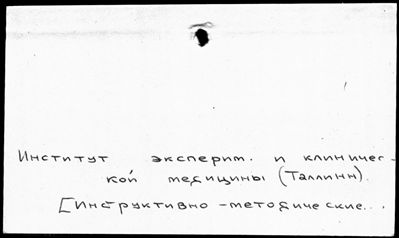 Институт эксперим. и клиничес-
кой медицины (Таллинн).
[Инструктивно-методические...